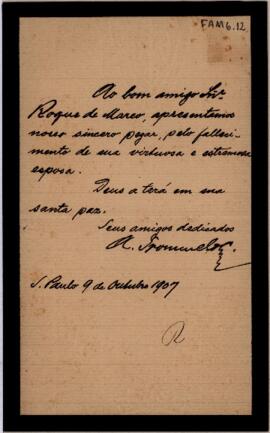 FAM6.12
Ao bom amigo Snr.
Roque de Marco, apresentamos
nosso sincero pezar, pelo falleci-
mento de sua virtuosa e estremosa
esposa.
Deus a terá em sua
santa paz.
Seus amigos dedicados
A.
S. Paulo 9 de Outubro 1907
R